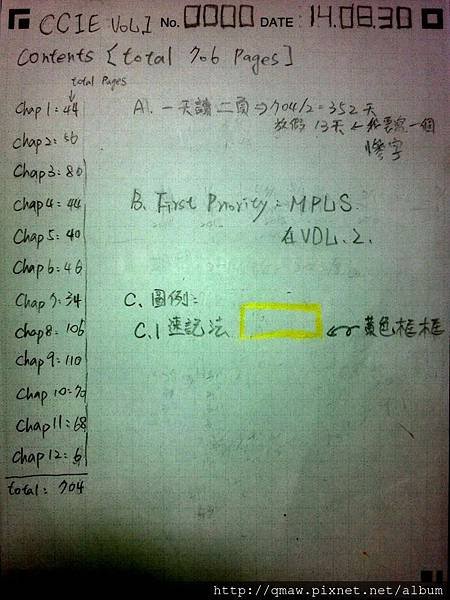 CCIE VOL.I No. 0000 DATE : 14.08.30
Contents [total 706 Pages]
total Pages
Chap 1: 44
Chap 2: 56
Chap 3: 80
Chap 4: 44
Chap 5: 40
Chap 6: 46
Chap 7: 34
Chap 8: 106
Chap 9: 110
Chap 10: 70
Chap 11: 68
Chap 12: 6
total: 704
A1. 一天讀二頁 ⇒ 704/2 = 352天
放假 13天 ← 我要寫一個
慘字
B. First Priority: MPLS.
在VOL.2.
C. 圖例:
C.1 速記法 ← 黃色框框
http://qmaw.pixnet.net/album